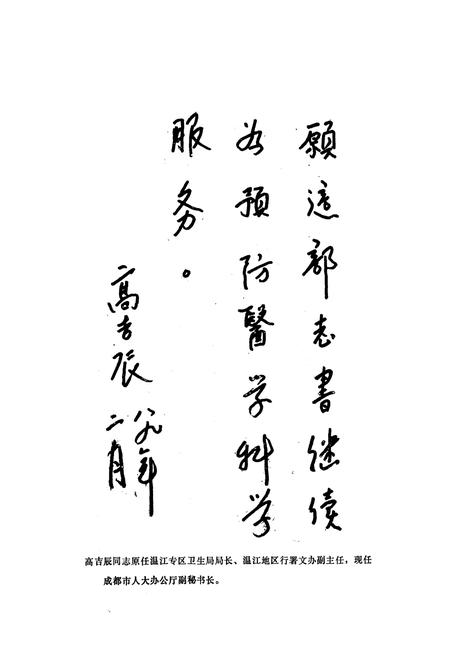 願這部志書继续
为预防醫学科学
服务。
高吉辰
八九年
二月
高吉辰同志原任温江专区卫生局局长、温江地区行署文办副主任，现任
成都市人大办公厅副秘书长。